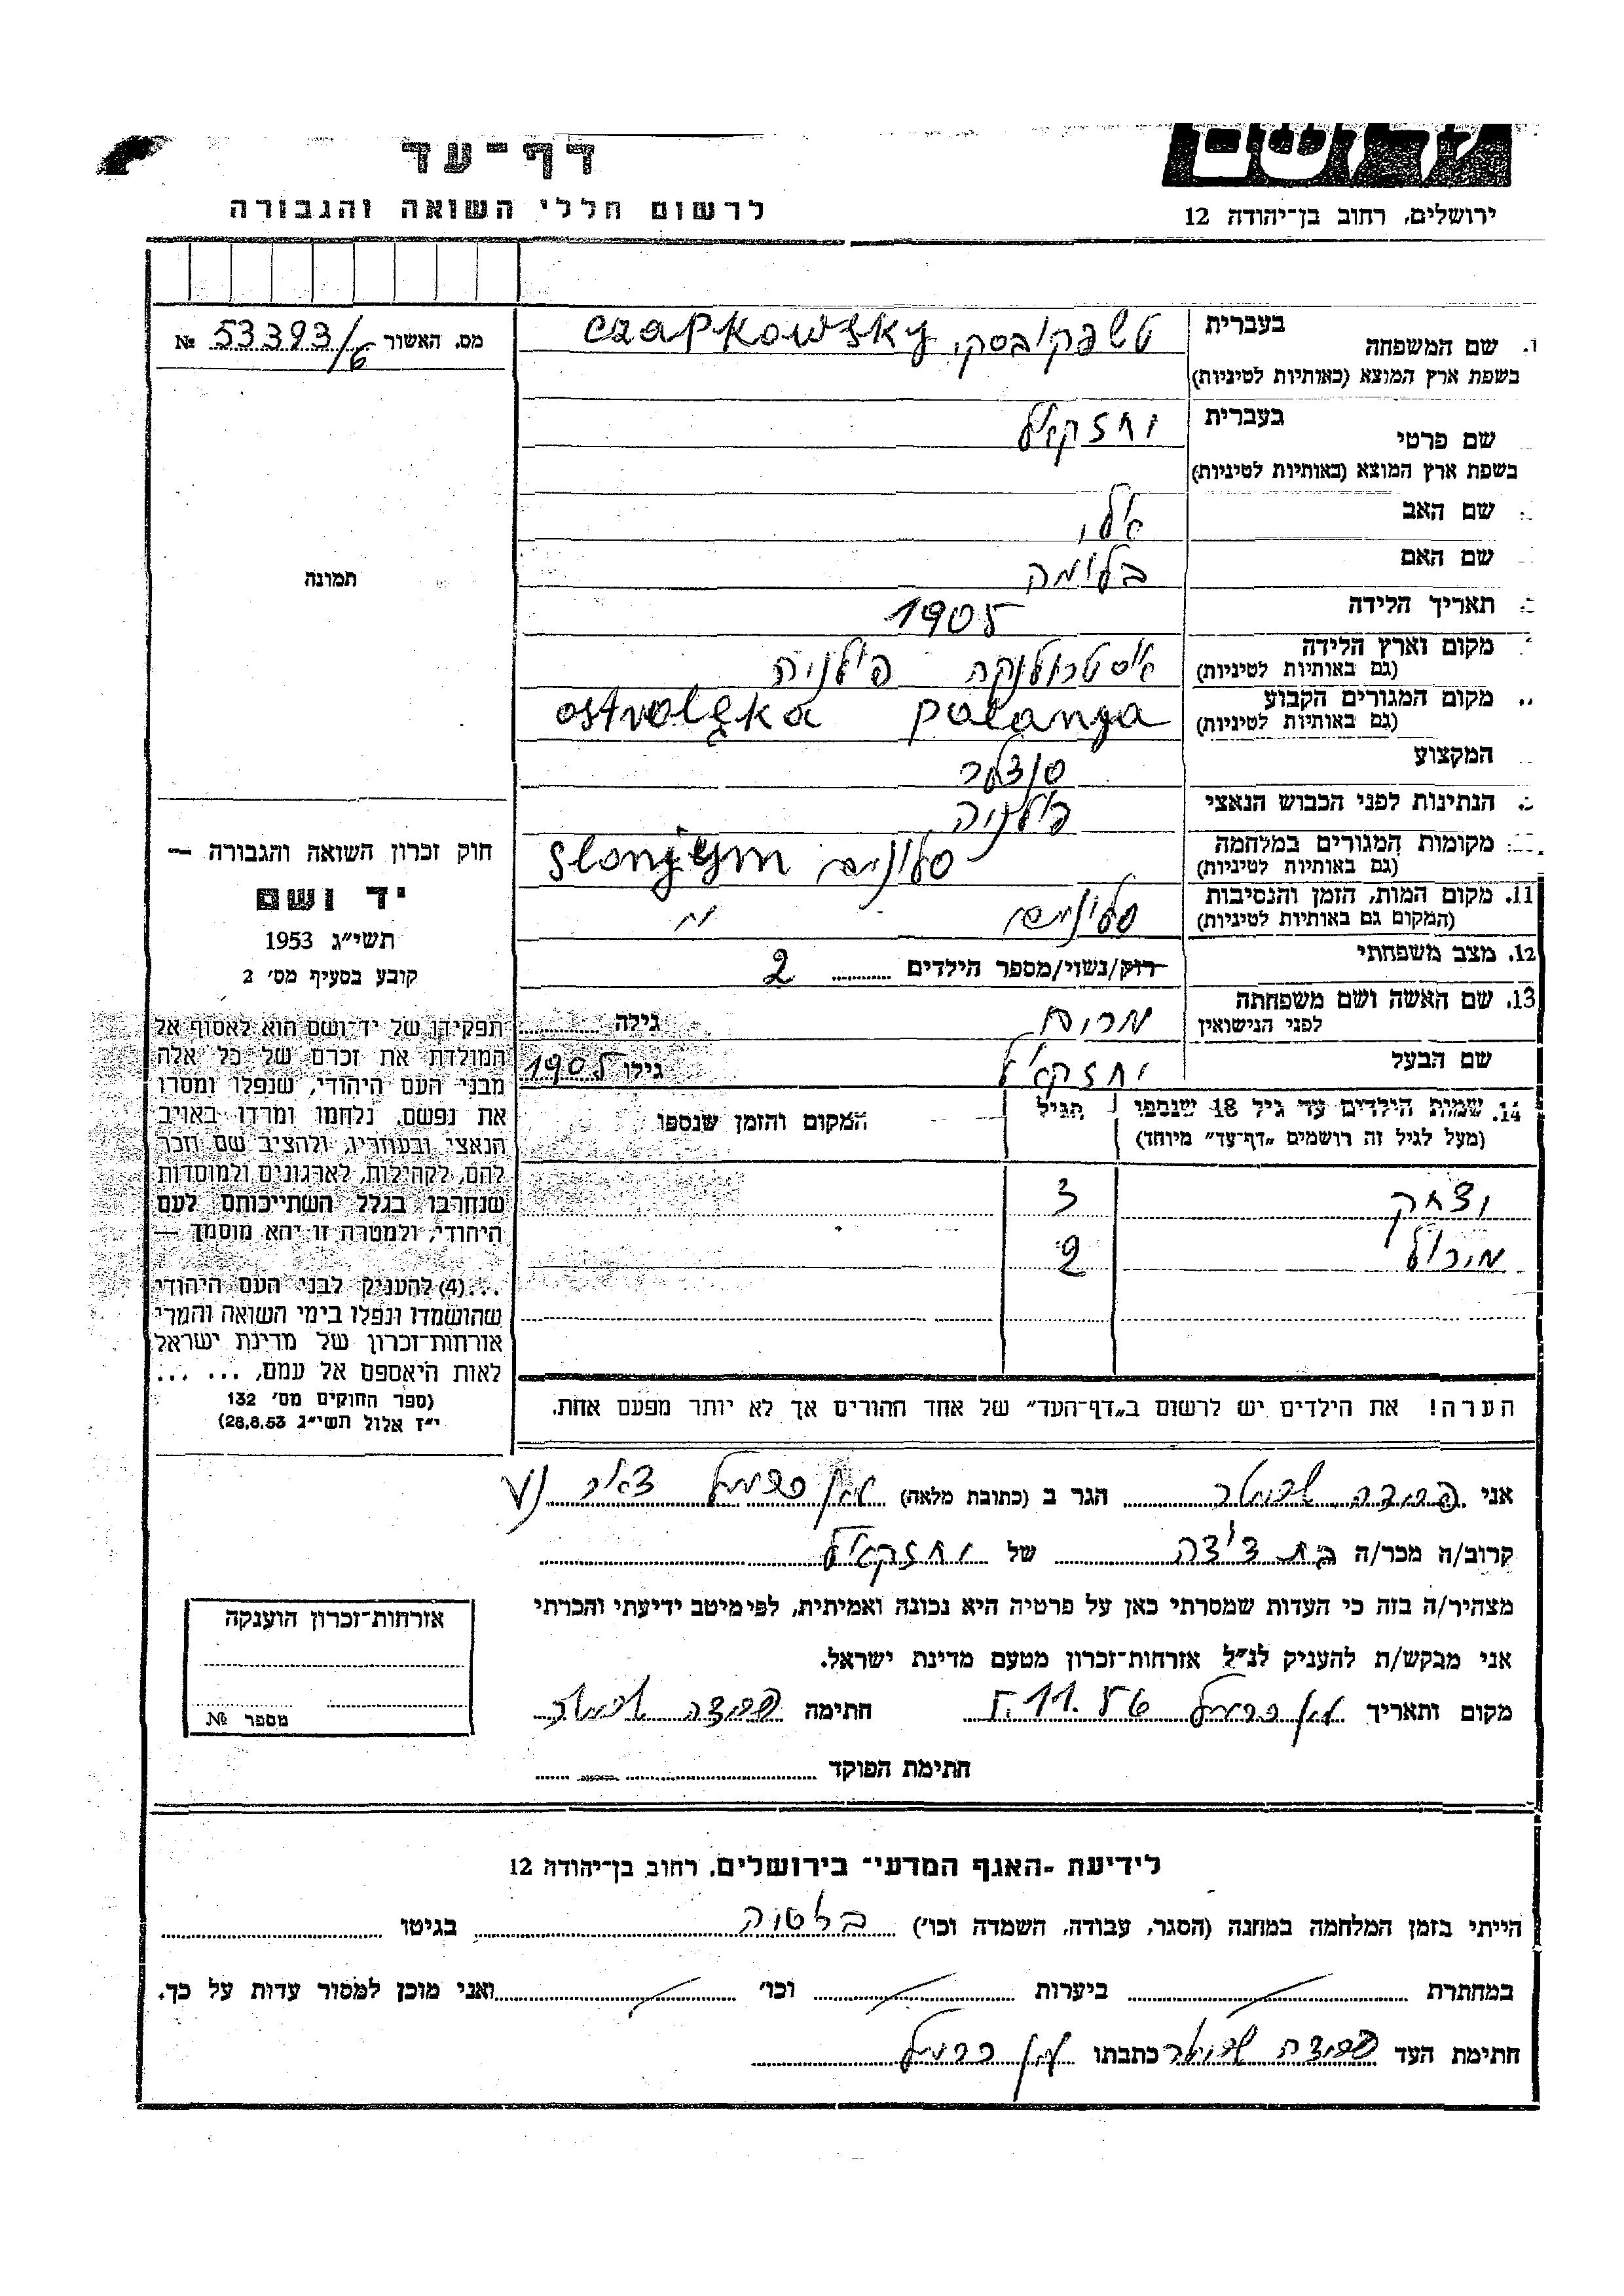 דף־עד
לרשום חללי השואה והגבורה
ירושלים, רחוב בן־יהודה 12
מס. האשור 53393/6 №
שם המשפחה בעברית טשפקובסקי czapkowsky
בשפת ארץ המוצא (באותיות לטיניות)
שם פרטי בעברית יחזקאל
בשפת ארץ המוצא (באותיות לטיניות)
שם האב אלי
שם האם בלומה
תאריך הלידה 1905
מקום וארץ הלידה אוסטרולנקה פולניה
(גם באותיות לטיניות)
מקום המגורים הקבוע ostrolęka polanya
(גם באותיות לטיניות)
המקצוע
הנתינות לפני הכבוש הנאצי פולניה
מקומות המגורים במלחמה סלונים slonym
(גם באותיות לטיניות)
11. מקום המות, הזמן והנסיבות סלונים
(המקום גם באותיות לטיניות)
12. מצב משפחתי רוק/נשוי/מספר הילדים 2
13. שם האשה ושם משפחתה מרים גילה
לפני הנישואין
שם הבעל יחזקאל גילו 1905
14. שמות הילדים עד גיל 18 שנספו הגיל המקום והזמן שנספו
(מעל לגיל זה רושמים „דף־עד" מיוחד)
יצחק 3
2
הערה! את הילדים יש לרשום ב„דף־העד" של אחד ההורים אך לא יותר מפעם אחת.
תמונה
חוק זכרון השואה והגבורה —
יד ושם
תשי״ג 1953
קובע בסעיף מס׳ 2
תפקידו של יד־ושם הוא לאסוף אל
המולדת את זכרם של כל אלה
מבני העם היהודי, שנפלו ומסרו
את נפשם, נלחמו ומרדו באויב
הנאצי ובעוזריו, ולהציב שם וזכר
להם, לקהילות, לארגונים ולמוסדות
שנחרבו בגלל השתייכותם לעם
היהודי, ולמטרה זו יהא מוסמך —
...(4) להעניק לבני העם היהודי
שהושמדו ונפלו בימי השואה והמרי
אזרחות־זכרון של מדינת ישראל
לאות היאספם אל עמם, ... ...
(ספר החוקים מס׳ 132
י״ז אלול תשי״ג 28.8.53)
אני הגר ב (כתובת מלאה)
קרוב/ה מכר/ה בת דודה של יחזקאל
מצהיר/ה בזה כי העדות שמסרתי כאן על פרטיה היא נכונה ואמיתית, לפי מיטב ידיעתי והכרתי
אני מבקש/ת להעניק לנ״ל אזרחות־זכרון מטעם מדינת ישראל.
מקום ותאריך חתימה
חתימת הפוקד
אזרחות־זכרון הוענקה
מספר №
לידיעת ״האגף המדעי״ בירושלים, רחוב בן־יהודה 12
הייתי בזמן המלחמה במחנה (הסגר, עבודה, השמדה וכו׳) בגיטו
במחתרת ביערות וכו׳ ואני מוכן למסור עדות על כך.
חתימת העד כתבתו